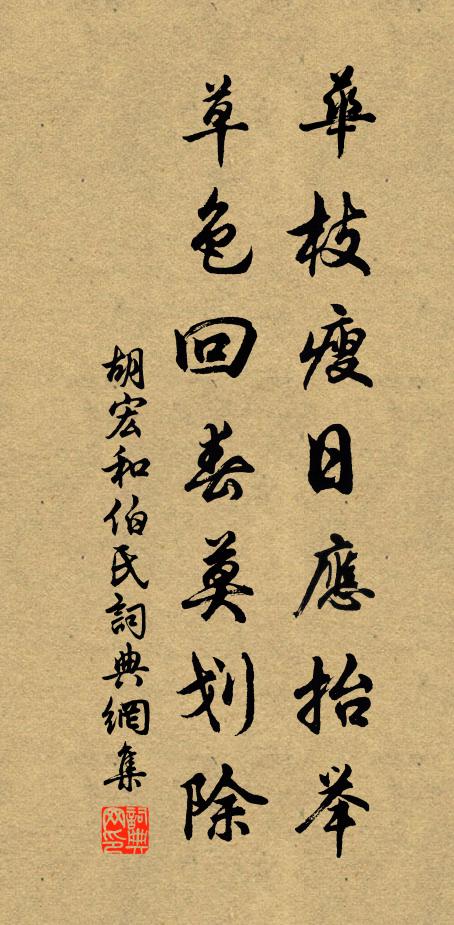 華枝瘦日應抬举
草色回春莫划除
胡宏和伯氏詞典網集
詞典网印